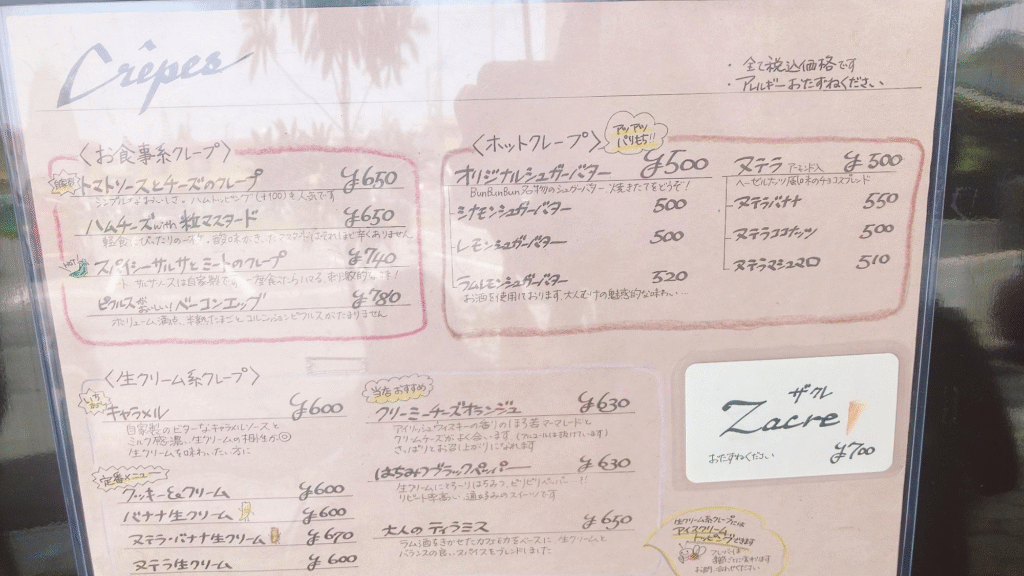 Crêpes
・全て税込価格です
・アレルギーおたずねください
〈お食事系クレープ〉
トマトソースとチーズのクレープ ¥650
ハムトッピング(+100)も人気です
ハムチーズwith粒マスタード ¥650
HOT!
スパイシーサルサとミートのクレープ ¥740
ピクルスがおいしいベーコンエッグ ¥780
ボリューム満点、半熟たまごとコルニッションピクルスがたまりません
〈ホットクレープ〉
アツアツパリもち!!
オリジナルシュガーバター ¥500
BunBunBun名物のシュガーバター 焼きたてをどうぞ!
シナモンシュガーバター 500
レモンシュガーバター 500
ラムレモンシュガーバター 520
お酒を使用しております。大人むけの魅惑的な味わい…
ヌテラ アーモンド入 ¥500
ヘーゼルナッツ風味のチョコスプレッド
ヌテラバナナ 550
ヌテラココナッツ 500
ヌテラマシュマロ 510
〈生クリーム系クレープ〉
キャラメル ¥600
自家製のビターなキャラメルソースと
ミルク感濃い生クリームの相性が◎
生クリームを味わいたい方に
定番メニュー
クッキー&クリーム ¥600
バナナ生クリーム ¥600
ヌテラ・バナナ生クリーム ¥670
ヌテラ生クリーム ¥600
当店おすすめ
クリーミーチーズオランジュ ¥630
アイリッシュウイスキーの香りのほろ苦マーマレードと
クリームチーズがよく合います(アルコールは抜けています)
さっぱりとお召し上がりになれます
はちみつブラックペッパー ¥630
生クリームにとろーりはちみつ、ピリピリペッパー!!
リピート率高い、通好みのスイーツです
大人のティラミス ¥650
ラム酒をきかせたカフェモカをベースに、生クリームと
バランスの良いスパイスをブレンドしました
ザクレ
Zacre
おたずねください ¥700
生クリーム系クレープには
アイスクリーム
トッピングできます
フレーバーは
季節ごとに変わります
お問い合わせください